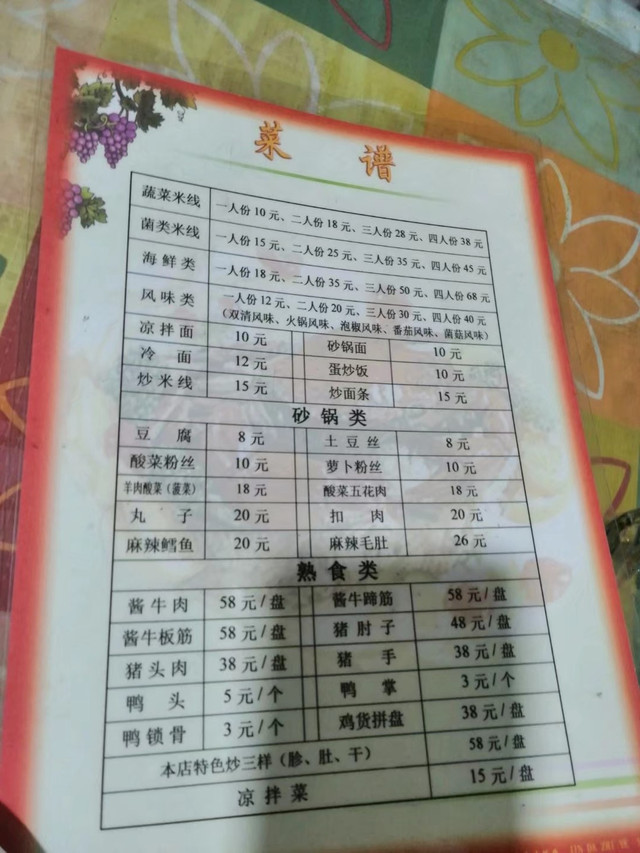 菜谱
蔬菜米线 一人份10元、二人份18元、三人份28元、四人份38元
菌类米线 一人份15元、二人份25元、三人份35元、四人份45元
海鲜类 一人份18元、二人份35元、三人份50元、四人份68元
风味类 一人份12元、二人份20元、三人份30元、四人份40元
(双清风味、火锅风味、泡椒风味、番茄风味、菌菇风味)
凉拌面 10元 砂锅面 10元
冷面 12元 蛋炒饭 10元
炒米线 15元 炒面条 15元
砂锅类
豆腐 8元 土豆丝 8元
酸菜粉丝 10元 萝卜粉丝 10元
羊肉酸菜(菠菜) 18元 酸菜五花肉 18元
丸子 20元 扣肉 20元
麻辣鳕鱼 20元 麻辣毛肚 26元
熟食类
酱牛肉 58元/盘 酱牛蹄筋 58元/盘
酱牛板筋 58元/盘 猪肘子 48元/盘
猪头肉 38元/盘 猪手 38元/盘
鸭头 5元/个 鸭掌 3元/个
鸭锁骨 3元/个 鸡货拼盘 38元/盘
本店特色炒三样(胗、肚、干) 58元/盘
凉拌菜 15元/盘